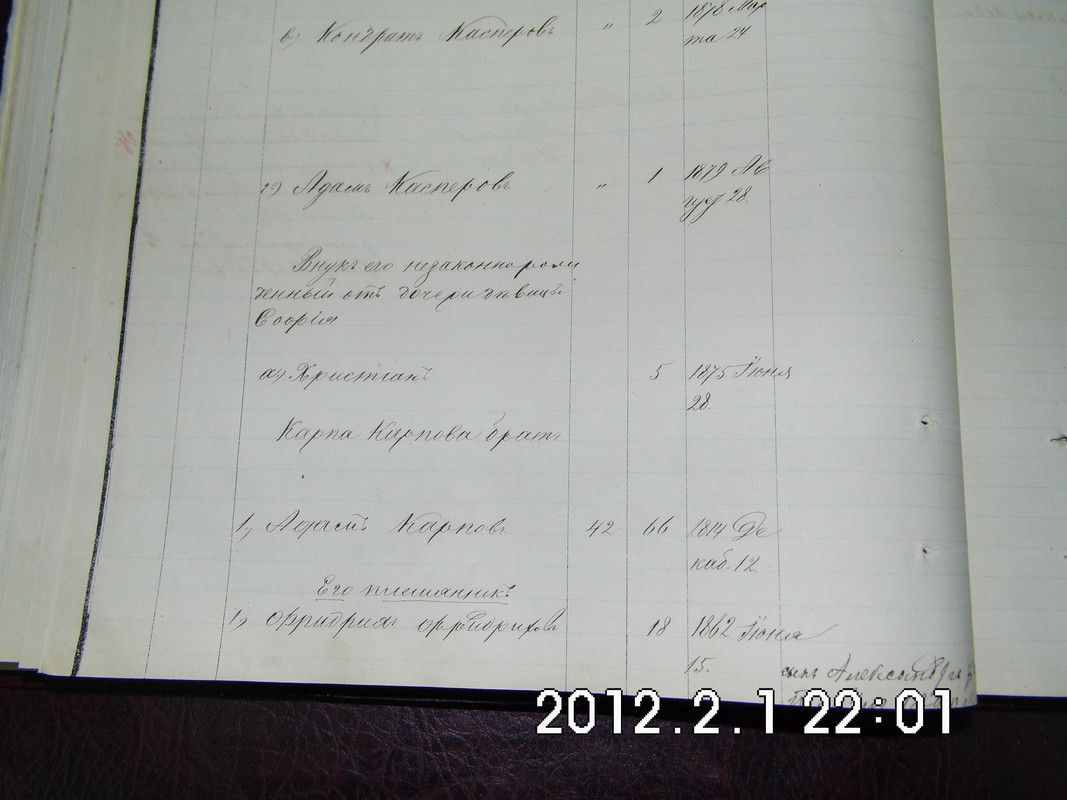 в) Кондратъ Касперовъ " 2 1878 Мар
та 24
г) Адамъ Касперовъ " 1 1879 Ав
густ 28
Внукъ его незаконнорож
денный отъ дочери дѣвицы
Софія
а) Христіанъ 5 1875 Іюня
28
Карпа Карпова братъ
1, Адамъ Карповъ 42 66 1814 Де
каб. 12
Его племянникъ
1, Фридрихъ Фридриховъ 18 1862 Іюня
15. сынъ Александръ
2012.2.1 22:01